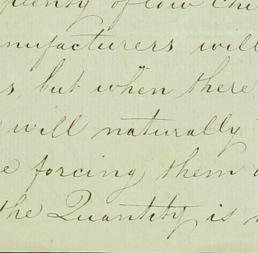 plenty of low
manufacturers will
but when there
will naturally
forcing them
the Quantity is